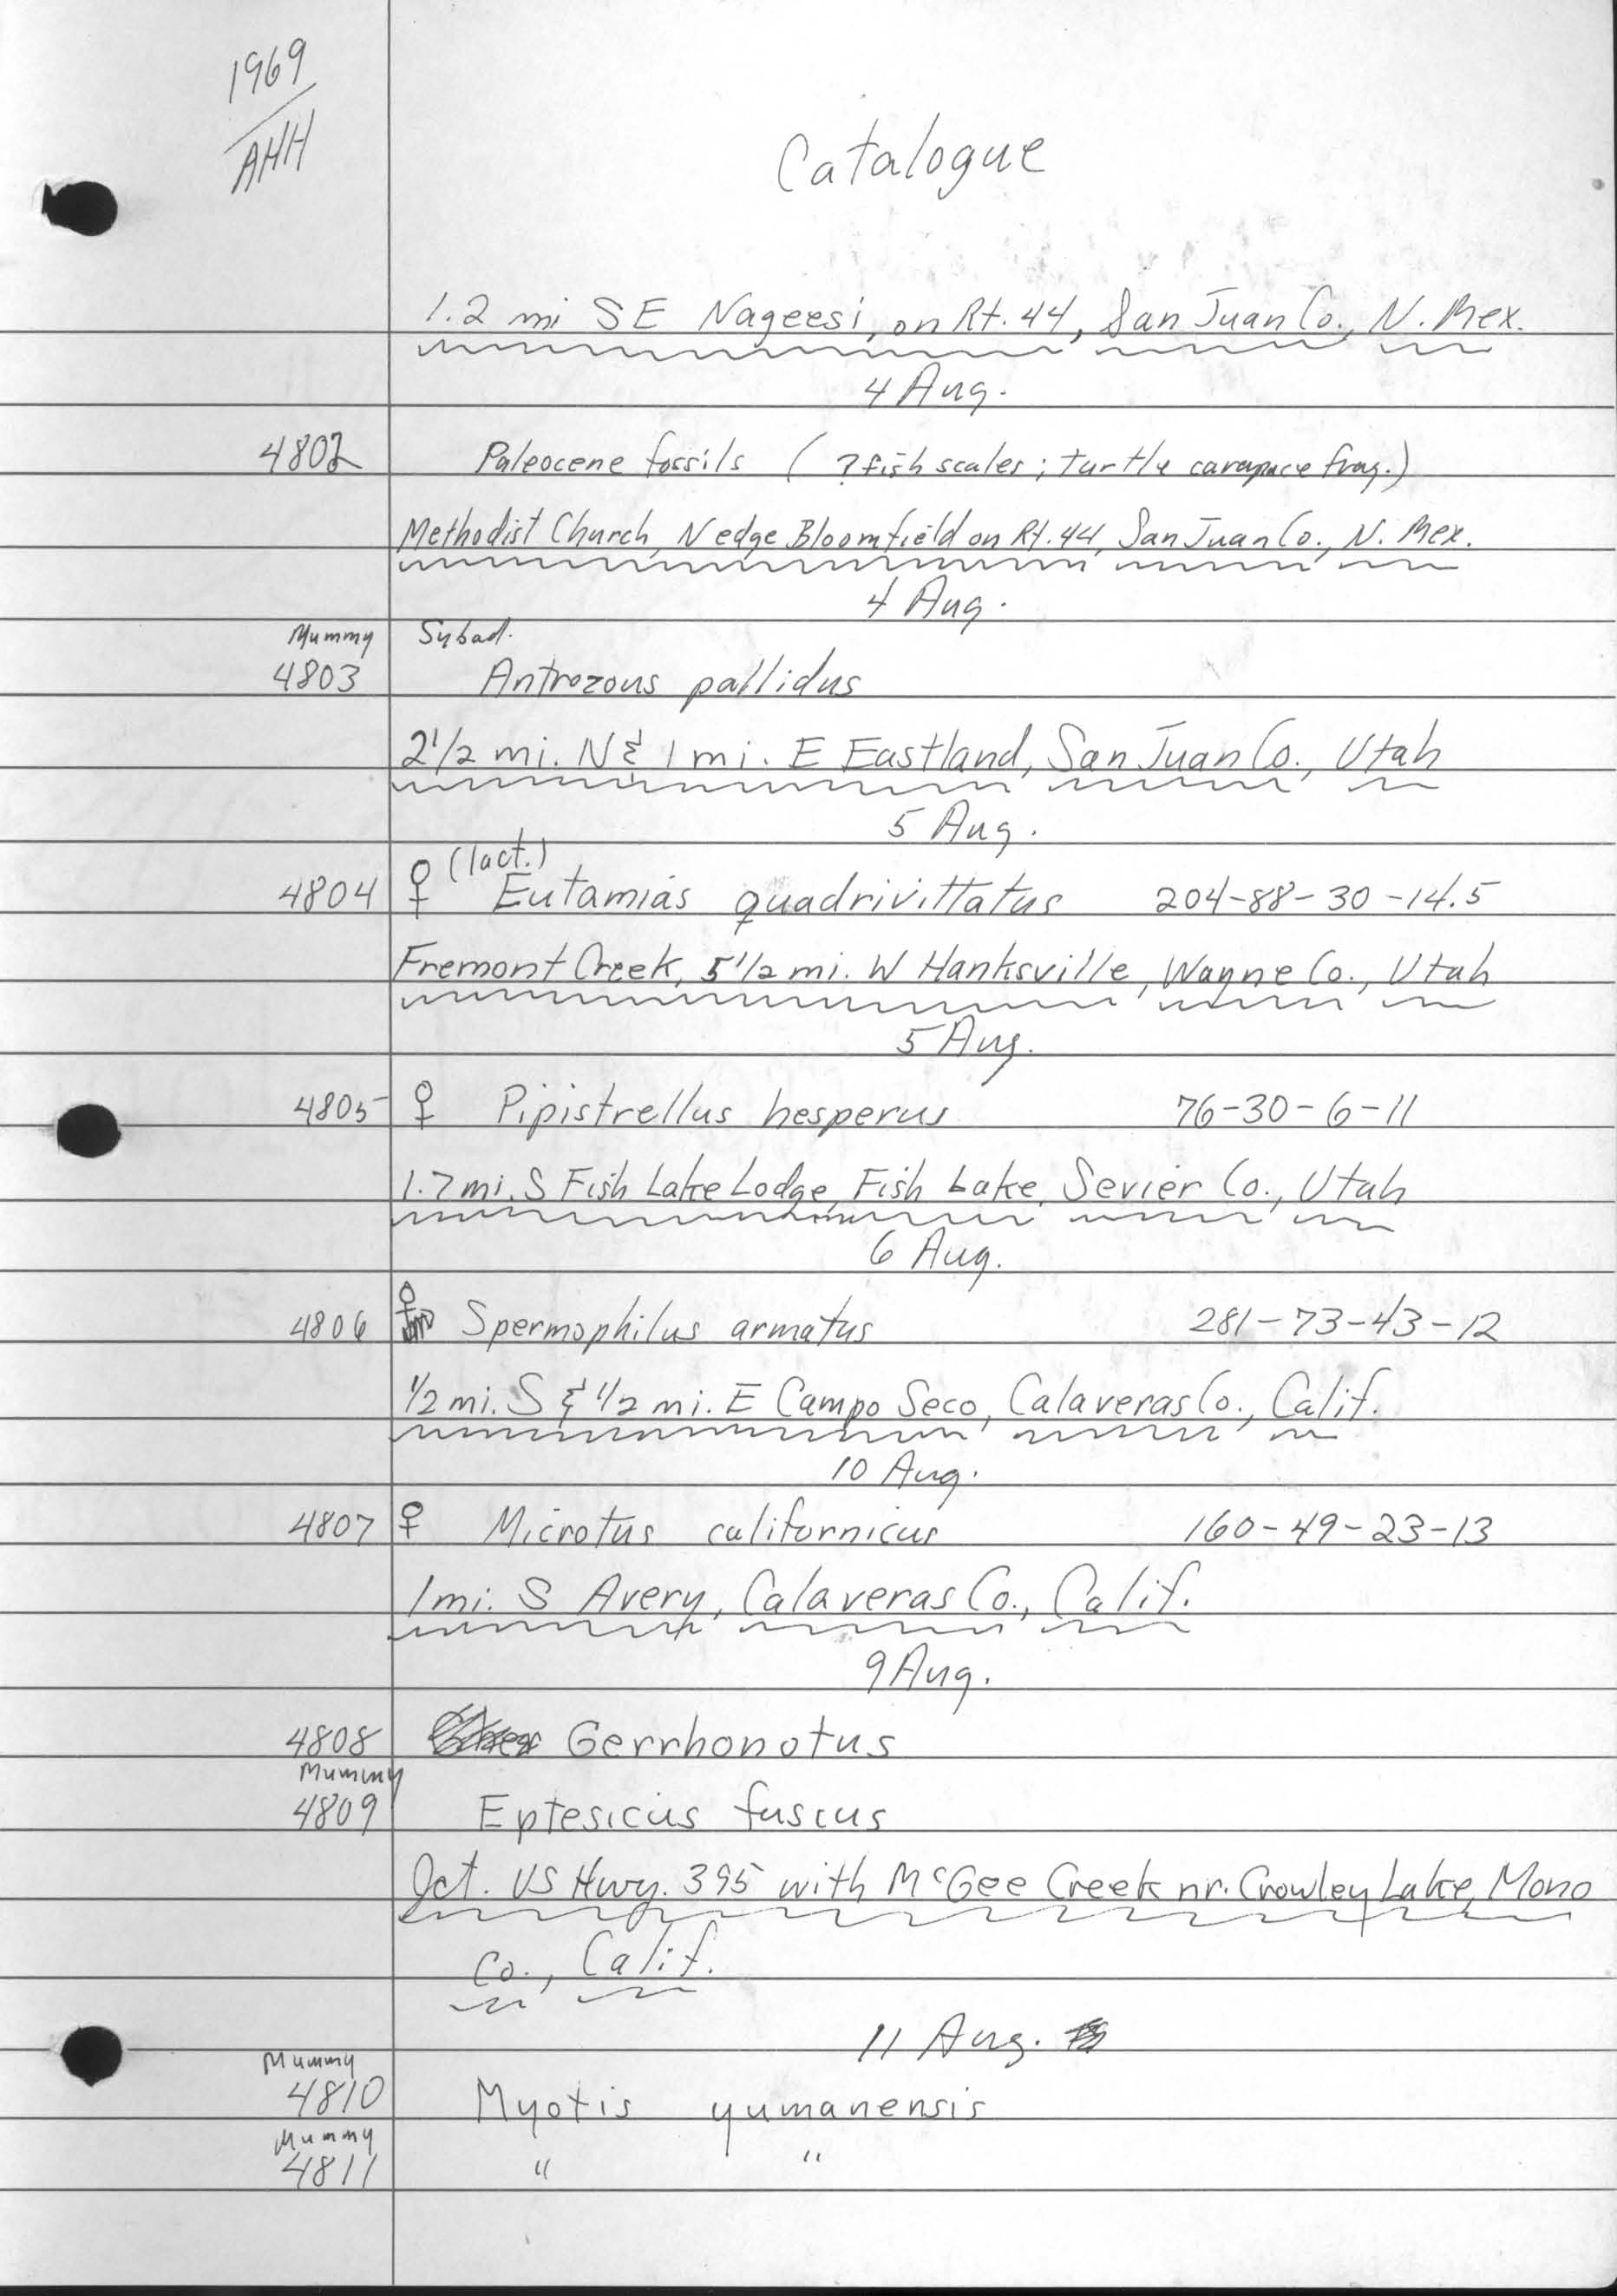 1969
AHH
Catalogue
1.2 mi SE Nageesi, on Rt. 44, San Juan Co., N. Mex.
4 Aug.
4802 Paleocene fossils ( ? fish scales; turtle carapace frag.)
Methodist Church, N edge Bloomfield on Rt. 44, San Juan Co., N. Mex.
4 Aug.
Mummy Subad.
4803 Antrozous pallidus
2 1/2 mi. N & 1 mi. E Eastland, San Juan Co., Utah
5 Aug.
(lact.)
4804 ♀ Eutamias quadrivittatus 204-88-30-14.5
Fremont Creek, 5 1/2 mi. W Hanksville, Wayne Co., Utah
5 Aug.
4805 ♀ Pipistrellus hesperus 76-30-6-11
1.7 mi. S Fish Lake Lodge, Fish Lake, Sevier Co., Utah
6 Aug.
4806 ♀ Spermophilus armatus 281-73-43-12
1/2 mi. S & 1/2 mi. E Campo Seco, Calaveras Co., Calif.
10 Aug.
4807 ♀ Microtus californicus 160-49-23-13
1 mi. S Avery, Calaveras Co., Calif.
9 Aug.
4808 Gerrhonotus
Mummy
4809 Eptesicus fuscus
Jct. US Hwy. 395 with McGee Creek nr. Crowley Lake, Mono
Co., Calif.
11 Aug.
Mummy
4810 Myotis yumanensis
Mummy
4811 " "